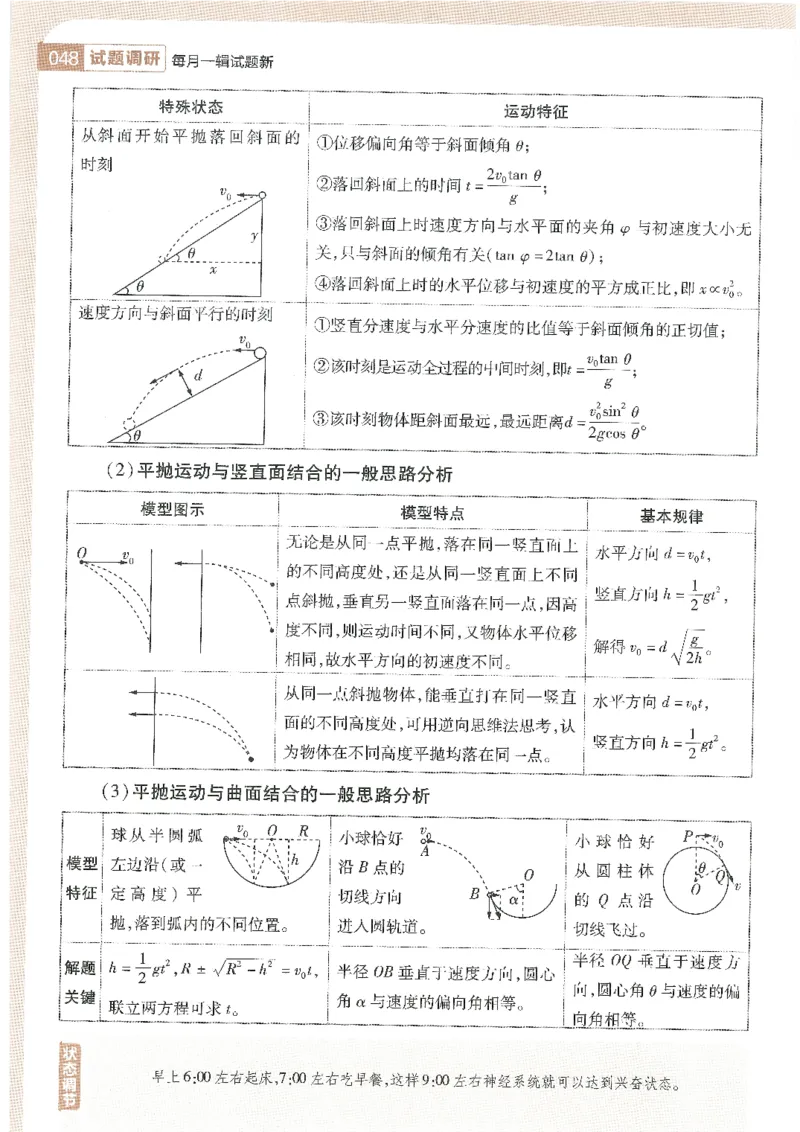 048 试题调研 每月一辑试题新
特殊状态
运动特征
从斜面开始平抛落回斜面的
时刻
v₀
y
θ
x
θ
①位移偏向角等于斜面倾角 θ;
②落回斜面上的时间 t = 2v₀tan θ / g ;
③落回斜面上时速度方向与水平面的夹角 φ 与初速度大小无
关,只与斜面的倾角有关(tan φ = 2tan θ);
④落回斜面上时的水平位移与初速度的平方成正比,即 x∝v₀²。
速度方向与斜面平行的时刻
v₀
d
θ
①竖直分速度与水平分速度的比值等于斜面倾角的正切值;
②该时刻是运动全过程的中间时刻,即t = v₀tan θ / g ;
③该时刻物体距斜面最远,最远距离d = v₀²sin² θ / 2gcos θ。
(2)平抛运动与竖直面结合的一般思路分析
模型图示
模型特点
基本规律
O v₀
无论是从同一点平抛,落在同一竖直面上
的不同高度处,还是从同一竖直面上不同
点斜抛,垂直另一竖直面落在同一点,因高
度不同,则运动时间不同,又物体水平位移
相同,故水平方向的初速度不同。
水平方向 d = v₀t,
竖直方向 h = 1/2 gt²,
解得 v₀ = d √(g/2h)。
从同一点斜抛物体,能垂直打在同一竖直
面的不同高度处,可用逆向思维法思考,认
为物体在不同高度平抛均落在同一点。
水平方向 d = v₀t,
竖直方向 h = 1/2 gt²。
(3)平抛运动与曲面结合的一般思路分析
模型
特征
球从半圆弧
左边沿(或一
定高度)平
抛,落到弧内的不同位置。
v₀ O R
h
小球恰好
沿 B 点的
切线方向
进入圆轨道。
v₀
A
O
B α
小球恰好
从圆柱体
的 Q 点沿
切线飞过。
P v₀
θ Q
O v
解题
关键
h = 1/2 gt², R ± √(R² - h²) = v₀t,
联立两方程可求 t。
半径 OB 垂直于速度方向,圆心
角 α 与速度的偏向角相等。
半径 OQ 垂直于速度方
向,圆心角 θ 与速度的偏
向角相等。
状态调节
早上 6:00 左右起床,7:00 左右吃早餐,这样 9:00 左右神经系统就可以达到兴奋状态。